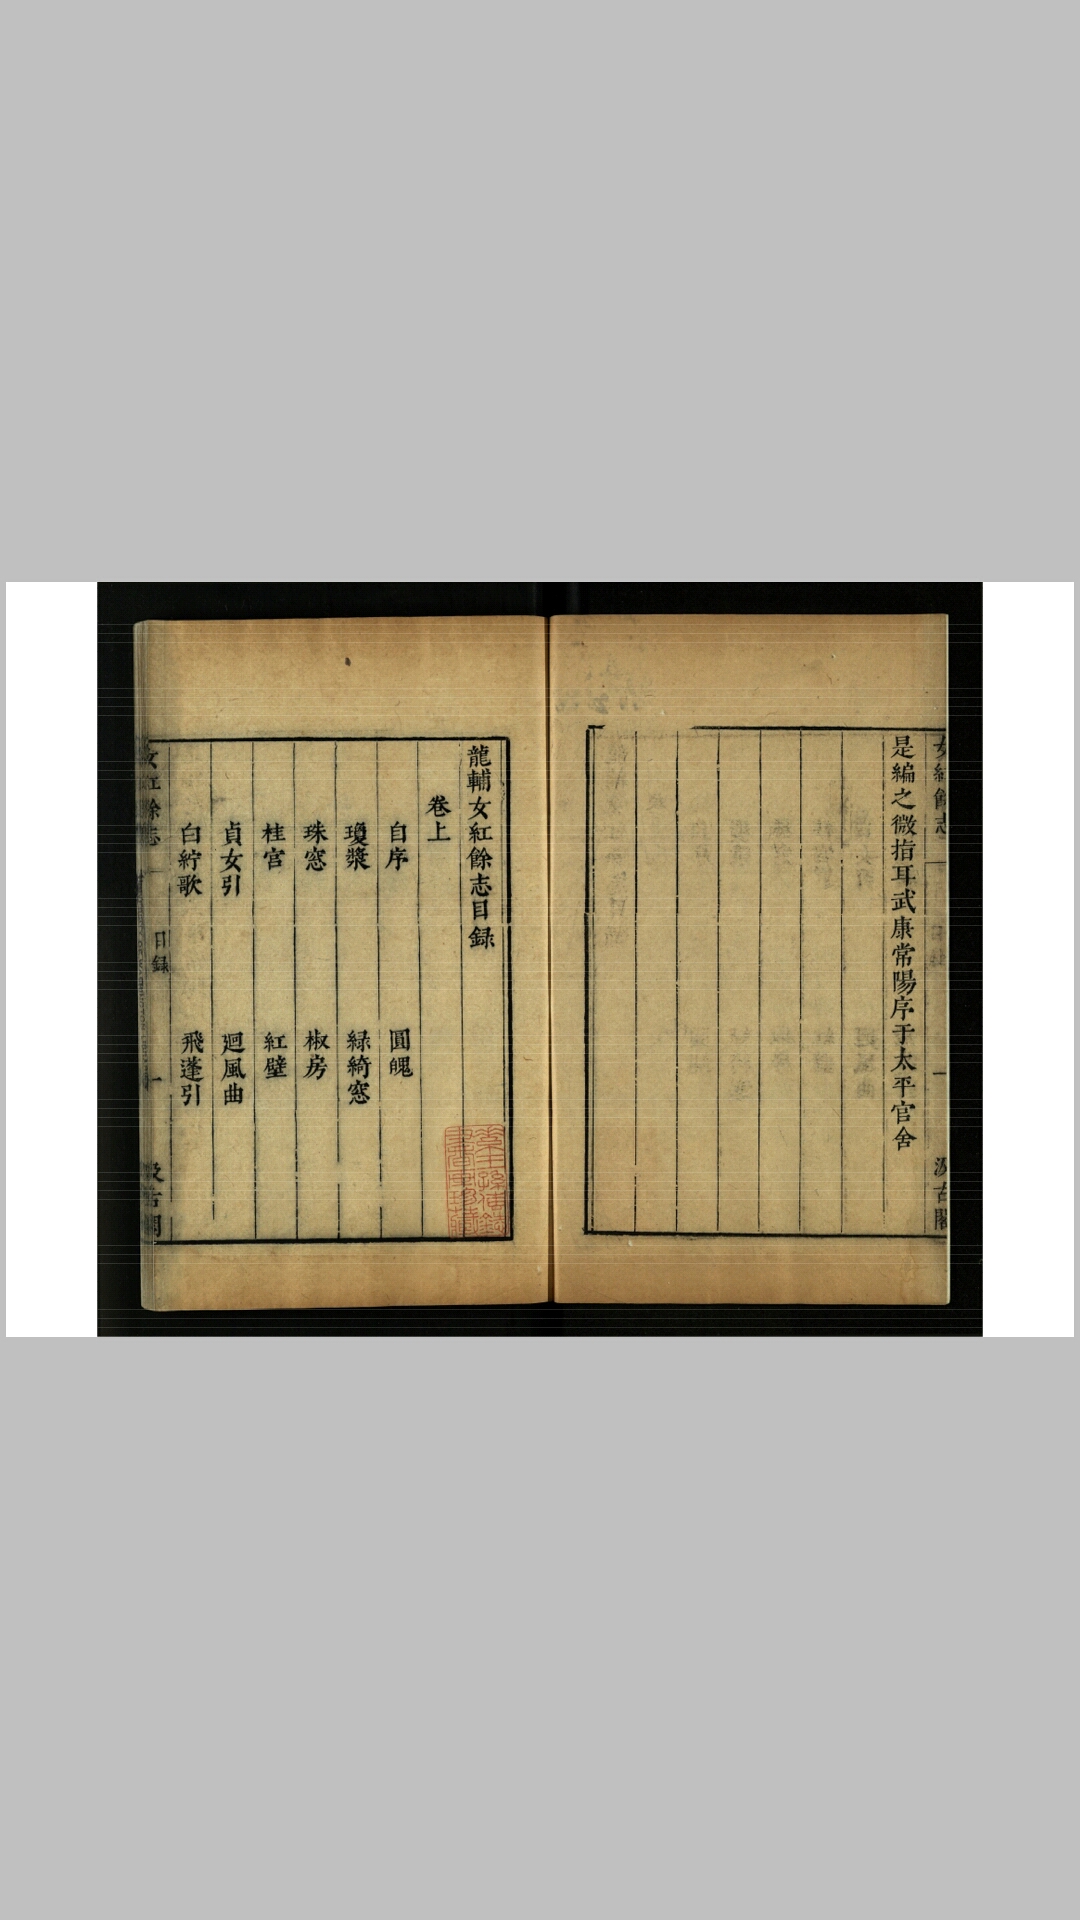 是編之微指耳武康常陽序于太平官舍
龍輔女紅餘志目録
卷上
自序
圓魄
瓊漿
緑綺窓
珠窓
椒房
桂宫
紅壁
貞女引
廻風曲
白紵歌
飛蓬引
女紅餘志
目録
一
汲古閣